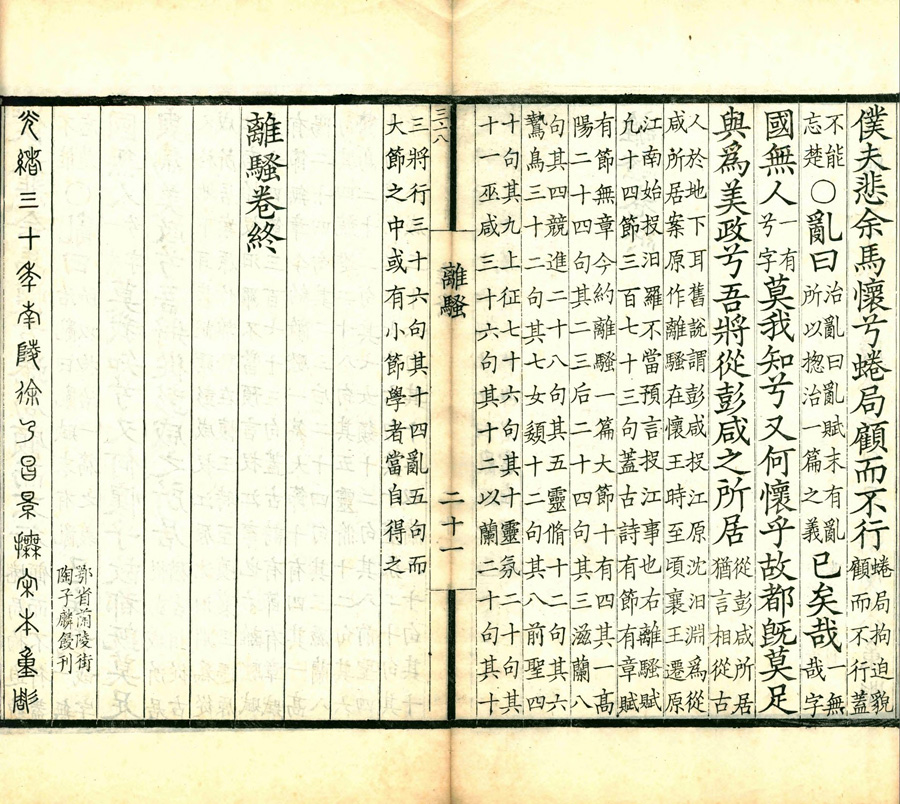 僕夫悲余馬懷兮蜷局顧而不行
蜷局拘迫貌
顧而不行蓋
不能
忘楚
○亂曰
治亂曰亂賦末有亂
所以揔治一篇之義
已矣哉
一無
哉字
國無人
一有
兮字
莫我知兮又何懷乎故都旣莫足
與爲美政兮吾將從彭咸之所居
從彭咸所居
猶言相從古
人於地下耳舊說謂彭咸投江原沈汨淵爲從
咸所居案原作離騷在懷王時至頃襄王遷原
江南始投汨羅不當預言投江事也右離騷賦
九十四節三百七十三句蓋古詩有節有章賦
有節無章今約離騷一篇大節十有四其一高
陽二十四句其二三后二十四句其三滋蘭八
句其四競進二十八句其五靈脩十二句其六
鷙鳥三十二句其七女嬃十二句其八前聖四
十句其九上征七十六句其十靈氛二十句其
十一巫咸三十六句其十二以蘭二十句其十
三六八
離騷
二十一
三將行三十六句其十四亂五句而
大節之中或有小節學者當自得之
離騷卷終
鄂省蘭陵街
陶子麟鐫刊
光緒三十年南陵徐乃昌景橅宋本重彫